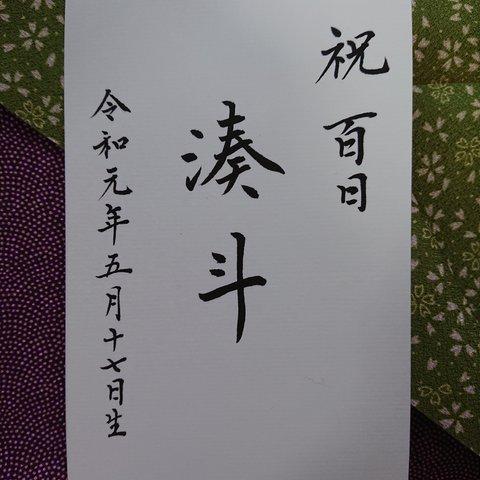 祝 百日
湊斗
令和元年五月十七日生